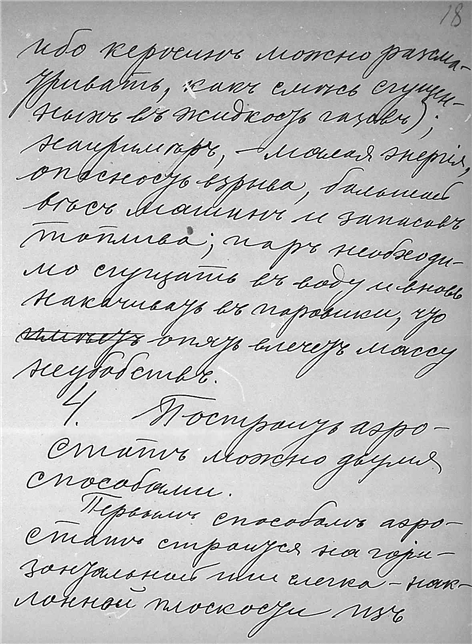 18
ибо керосинъ можно разсма-
тривать, какъ смѣсь сгущен-
ныхъ въ жидкость газовъ);
напримѣръ, – малая энергія,
опасность взрыва, большой
вѣсъ машинъ и запасовъ
топлива; паръ необходи-
мо сгущать въ воду и вновь
накачивать въ паровики, что
опять влечетъ массу
неудобствъ.
4. Построить аэро-
статъ можно двумя
способами.
Первымъ способомъ аэро-
статъ строится на гори-
зонтальной или слегка-нак-
лонной плоскости изъ